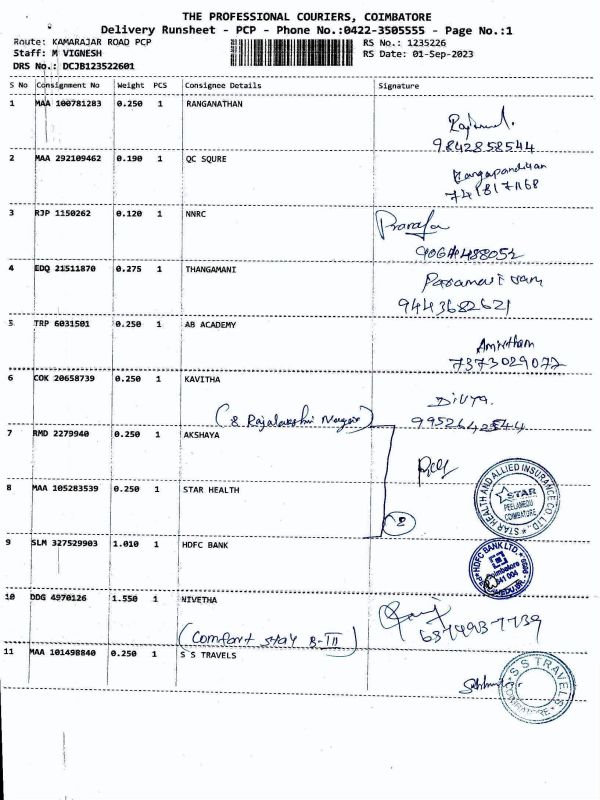 THE PROFESSIONAL COURIERS, COIMBATORE
Delivery Runsheet - PCP - Phone No.:0422-3505555 - Page No.:1
Route: KAMARAJAR ROAD PCP RS No.: 1235226
Staff: M VIGNESH RS Date: 01-Sep-2023
DRS No.: DCJB123522601
S No Consignment No Weight PCS Consignee Details Signature
1 MAA 100781283 0.250 1 RANGANATHAN
9842858544
2 MAA 292109462 0.190 1 QC SQURE
Rangapandiyan
3 RJP 1150262 0.120 1 NNRC
4 EDQ 21511870 0.275 1 THANGAMANI
9443682621
5 TRP 6031501 0.250 1 AB ACADEMY
7373029072
6 COK 20658739 0.250 1 KAVITHA
DIVYA.
(8 Rajalakshmi Nagar)
9952642544
7 RMD 2279940 0.250 1 AKSHAYA
8 MAA 105283539 0.250 1 STAR HEALTH
STAR HEALTH AND ALLIED INSURANCE CO. LTD.
STAR
PEELAMEDU
COIMBATORE
2
9 SLM 327529903 1.010 1 HDFC BANK
HDFC BANK LTD.
Coimbatore
641 004
10 DDG 4970126 1.550 1 NIVETHA
6374937739
(Comfort stay B-III)
11 MAA 101498840 0.250 1 S S TRAVELS
S S TRAVELS
COIMBATORE